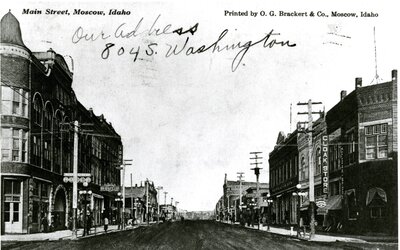 Main Street, Moscow, Idaho
Printed by O. G. Brackert & Co., Moscow, Idaho
Our address
804 S. Washington
CLOAK STORE